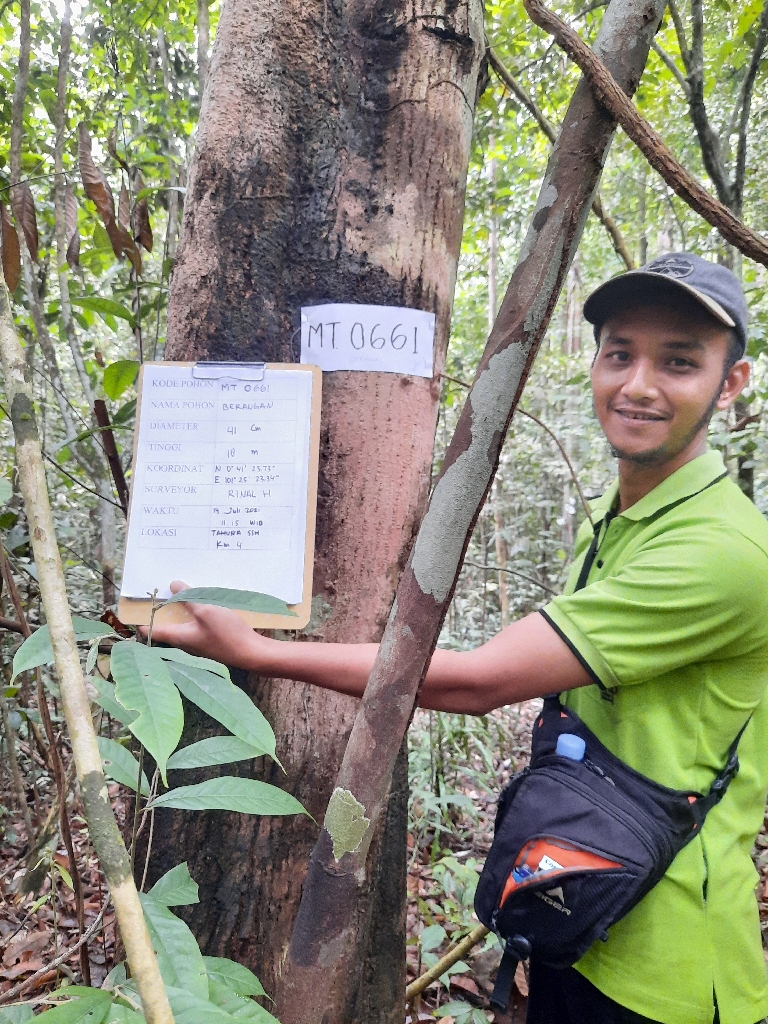 MT. 0661
KODE POHON MT 0661
NAMA POHON BERANGAN
DIAMETER 41 Cm
TINGGI 18 m
KOORDINAT N 0° 41' 25.73"
E 101° 25' 23.34"
SURVEYOR RINAL H
WAKTU Juli 2021
11.15 WIB
LOKASI TAHURA SSH
KM 4
EIGER